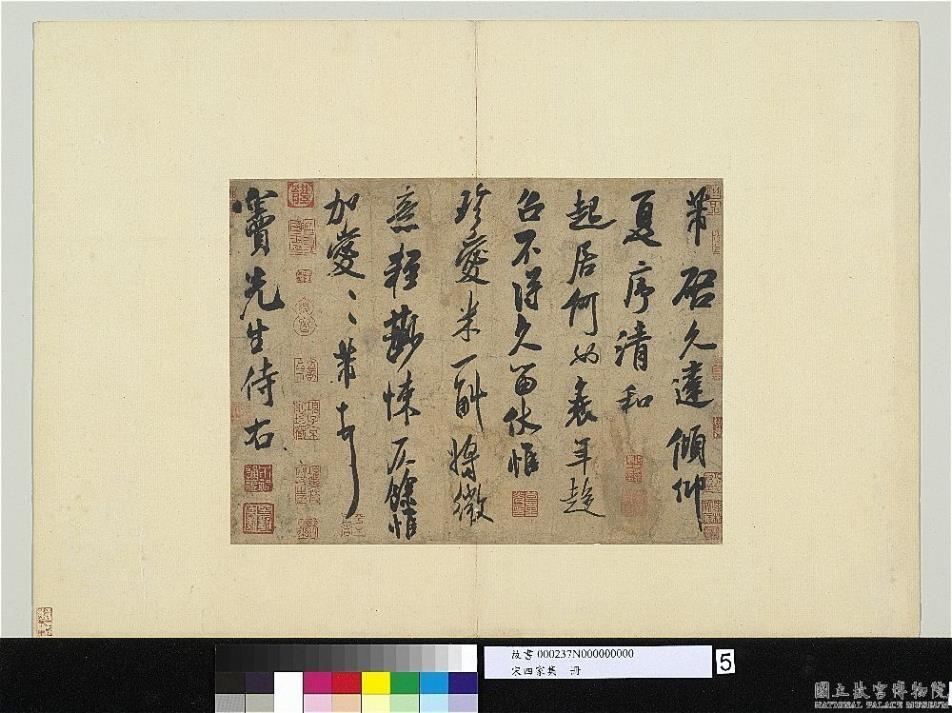 芾啟久違傾仰
夏序清和
起居何如衰年趍
召不得久留伏惟
珍愛米一斛將微
意輕尠悚仄餘惟
加愛、芾頓首
竇先生侍右
故書 000237N000000000
宋四家集 冊
5
國立故宮博物院
NATIONAL PALACE MUSEUM